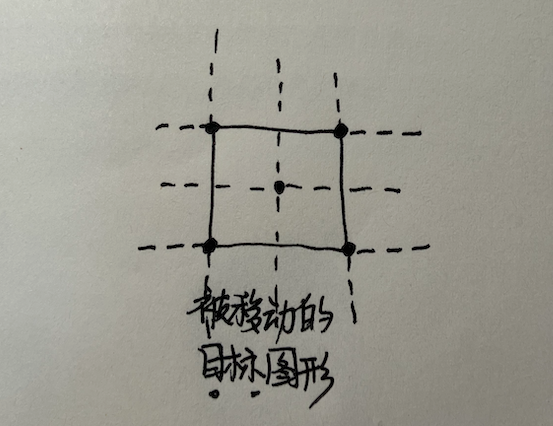 被移动的
目标图形